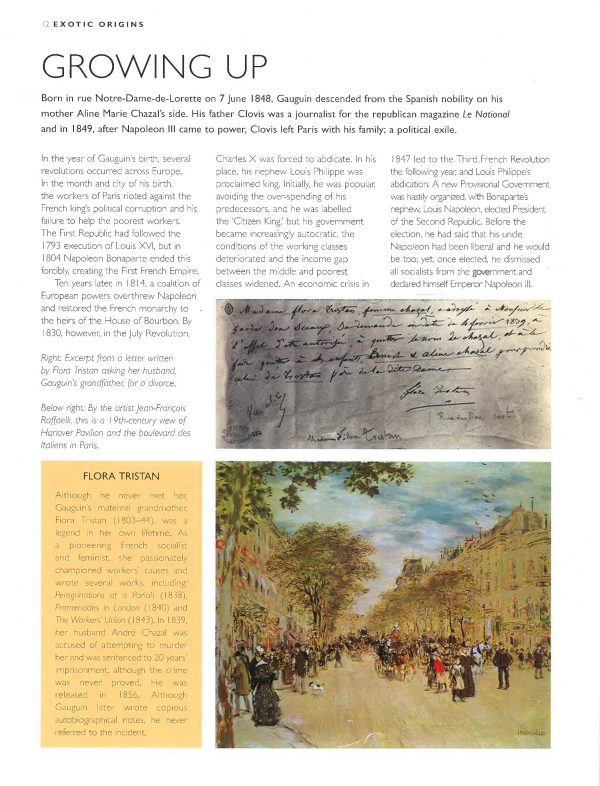 12 EXOTIC ORIGINS
GROWING UP
Born in rue Notre-Dame-de-Lorette on 7 June 1848, Gauguin descended from the Spanish nobility on his
mother Aline Marie Chazal's side. His father Clovis was a journalist for the republican magazine Le National
and in 1849, after Napoleon III came to power, Clovis left Paris with his family; a political exile.
In the year of Gauguin's birth, several
revolutions occurred across Europe.
In the month and city of his birth,
the workers of Paris rioted against the
French king's political corruption and his
failure to help the poorest workers.
The First Republic had followed the
1793 execution of Louis XVI, but in
1804 Napoleon Bonaparte ended this
forcibly, creating the First French Empire.
Ten years later, in 1814, a coalition of
European powers overthrew Napoleon
and restored the French monarchy to
the heirs of the House of Bourbon. By
1830, however, in the July Revolution,
Charles X was forced to abdicate. In his
place, his nephew Louis Philippe was
proclaimed king. Initially, he was popular,
avoiding the over-spending of his
predecessors, and he was labelled
the 'Citizen King,' but his government
became increasingly autocratic, the
conditions of the working classes
deteriorated and the income gap
between the middle and poorest
classes widened. An economic crisis in
1847 led to the Third French Revolution
the following year, and Louis Philippe's
abdication. A new Provisional Government
was hastily organized, with Bonaparte's
nephew, Louis Napoleon, elected President
of the Second Republic. Before the
election, he had said that his uncle
Napoleon had been liberal and he would
be too; yet, once elected, he dismissed
all socialists from the government and
declared himself Emperor Napoleon III.
Right: Excerpt from a letter written
by Flora Tristan asking her husband,
Gauguin's grandfather, for a divorce.
Below right: By the artist Jean-François
Raffaelli, this is a 19th-century view of
Hanover Pavilion and the boulevard des
Italiens in Paris.
Madame flora Tristan, femme chazal, a adressé à Monsieur le
garde des Sceaux
chazal
Flora Tristan
Rue du Bac
Tristan
FLORA TRISTAN
Although he never met her,
Gauguin's maternal grandmother,
Flora Tristan (1803–44), was a
legend in her own lifetime. As
a pioneering French socialist
and feminist, she passionately
championed workers' causes and
wrote several works, including:
Peregrinations of a Pariah (1838),
Promenades in London (1840) and
The Workers' Union (1843). In 1839,
her husband André Chazal was
accused of attempting to murder
her and was sentenced to 20 years'
imprisonment, although the crime
was never proved. He was
released in 1856. Although
Gauguin later wrote copious
autobiographical notes, he never
referred to the incident.